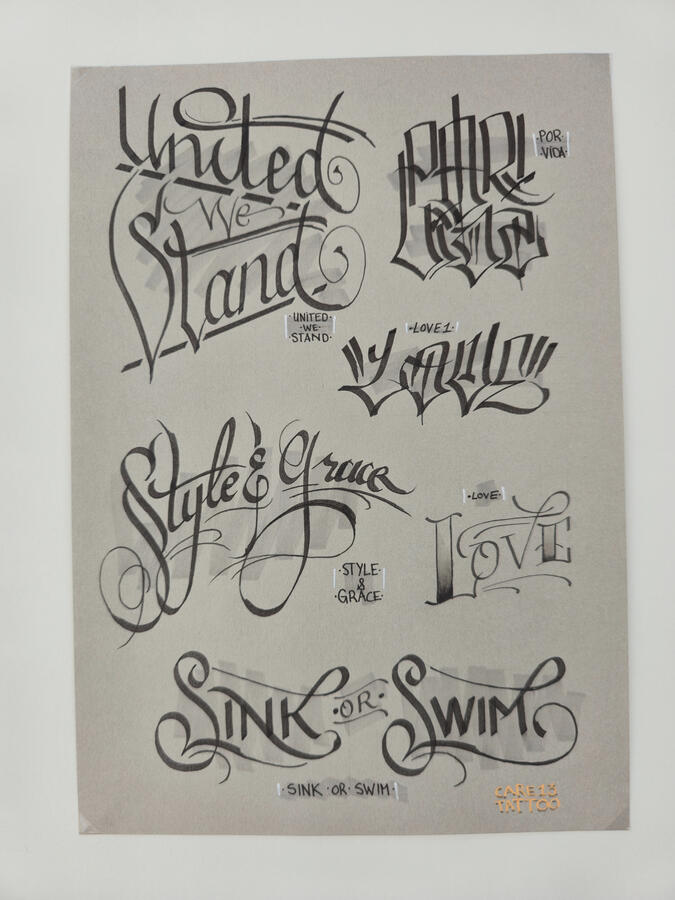 United
We
Stand
·UNITED·
·WE·
STAND·
POR
VIDA
·POR·
·VIDA·
·LOVE1·
"LOVE1"
Style & grace
·STYLE·
&
·GRACE·
·LOVE·
LOVE
SINK ·OR· SWIM.
·SINK·OR·SWIM·
CARE13
TATTOO